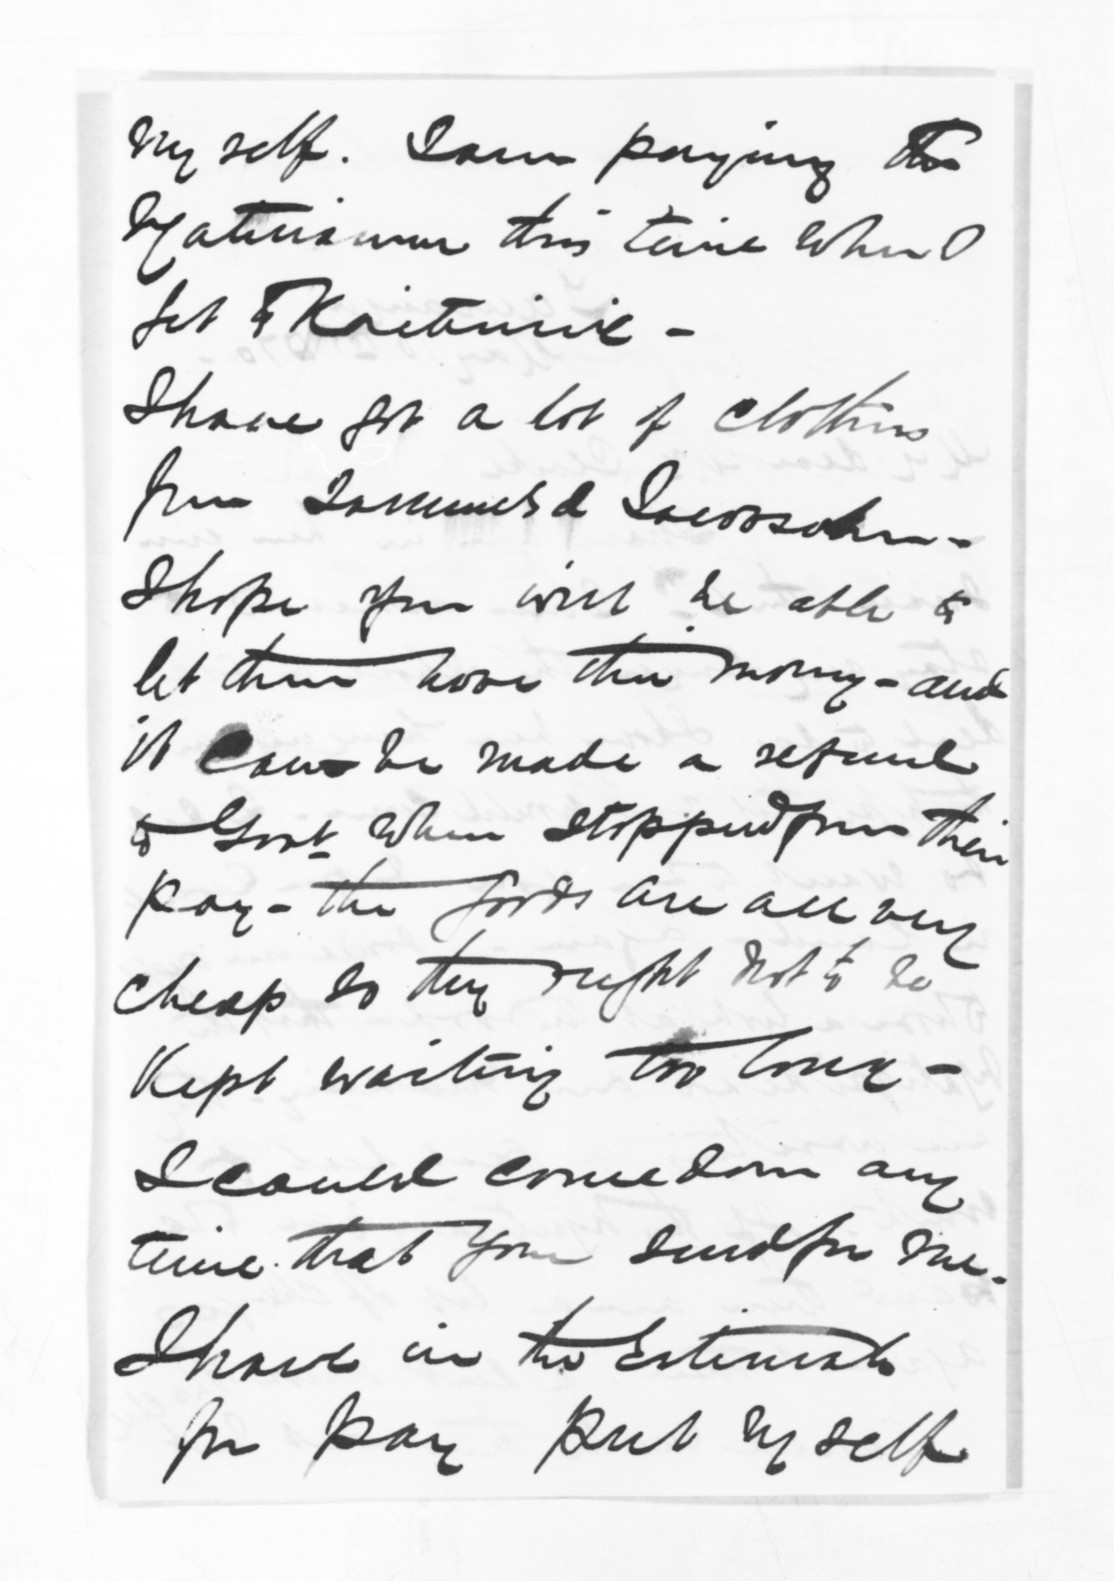 My self. I am paying the
Ngatiraunui this time when I
get to Kaiteriria -
I have got a lot of clothing
from Lammels &
I hope you will be able to
let them have their money - and
it can be made a refund
to Govt when stopped from their
pay - the goods are all very
cheap so they right not to be
Kept waiting too long -
I could come down any
time that you send for me.
I have in the Estimate
for pay put My self